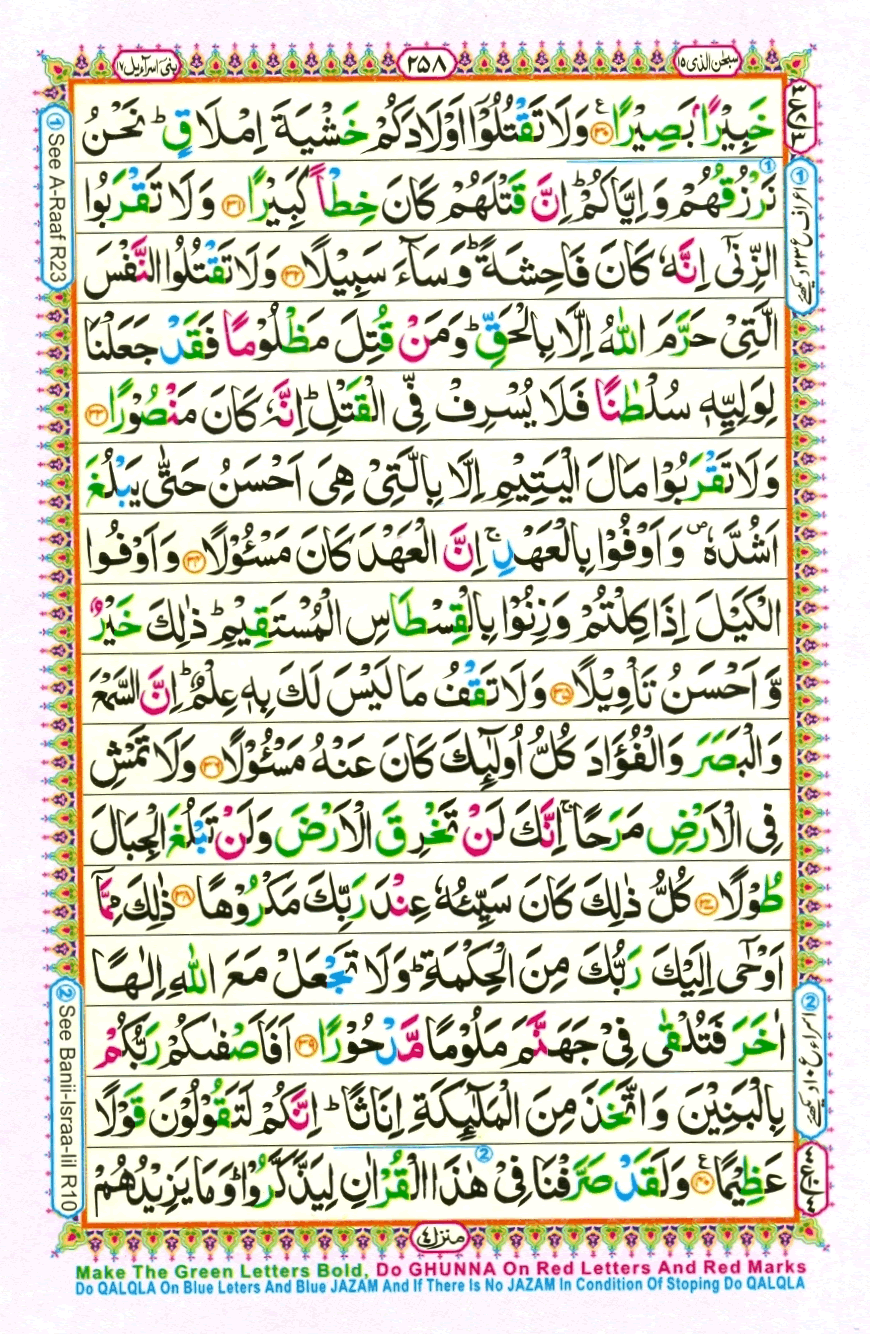 بنیٓ اسرآءیل ۱۷
۲۵۸
سبحٰن الذی ۱۵
خَبِيْرًۢا بَصِيْرًا ﴿۳۰﴾ وَلَا تَقْتُلُوْۤا اَوْلَادَكُمْ خَشْيَةَ اِمْلَاقٍ ؕ نَحْنُ
نَرْزُقُهُمْ وَاِيَّاكُمْ ؕ اِنَّ قَتْلَهُمْ كَانَ خِطْاً كَبِيْرًا ﴿۳۱﴾ وَلَا تَقْرَبُوا
الزِّنٰۤى اِنَّهٗ كَانَ فَاحِشَةً ؕ وَسَآءَ سَبِيْلًا ﴿۳۲﴾ وَلَا تَقْتُلُوا النَّفْسَ
الَّتِىْ حَرَّمَ اللّٰهُ اِلَّا بِالْحَقِّ ؕ وَمَنْ قُتِلَ مَظْلُوْمًا فَقَدْ جَعَلْنَا
لِوَلِيِّهٖ سُلْطٰنًا فَلَا يُسْرِفْ فِّى الْقَتْلِ ؕ اِنَّهٗ كَانَ مَنْصُوْرًا ﴿۳۳﴾
وَلَا تَقْرَبُوْا مَالَ الْيَتِيْمِ اِلَّا بِالَّتِىْ هِىَ اَحْسَنُ حَتّٰى يَبْلُغَ
اَشُدَّهٗ ۪ وَاَوْفُوْا بِالْعَهْدِ ۚ اِنَّ الْعَهْدَ كَانَ مَسْئُوْلًا ﴿۳۴﴾ وَاَوْفُوا
الْكَيْلَ اِذَا كِلْتُمْ وَزِنُوْا بِالْقِسْطَاسِ الْمُسْتَقِيْمِ ؕ ذٰلِكَ خَيْرٌ
وَّاَحْسَنُ تَاْوِيْلًا ﴿۳۵﴾ وَلَا تَقْفُ مَا لَيْسَ لَكَ بِهٖ عِلْمٌ ؕ اِنَّ السَّمْعَ
وَالْبَصَرَ وَالْفُؤَادَ كُلُّ اُولٰٓئِكَ كَانَ عَنْهُ مَسْئُوْلًا ﴿۳۶﴾ وَلَا تَمْشِ
فِى الْاَرْضِ مَرَحًا ۚ اِنَّكَ لَنْ تَخْرِقَ الْاَرْضَ وَلَنْ تَبْلُغَ الْجِبَالَ
طُوْلًا ﴿۳۷﴾ كُلُّ ذٰلِكَ كَانَ سَيِّئُهٗ عِنْدَ رَبِّكَ مَكْرُوْهًا ﴿۳۸﴾ ذٰلِكَ مِمَّاۤ
اَوْحٰۤى اِلَيْكَ رَبُّكَ مِنَ الْحِكْمَةِ ؕ وَلَا تَجْعَلْ مَعَ اللّٰهِ اِلٰهًا
اٰخَرَ فَتُلْقٰى فِىْ جَهَنَّمَ مَلُوْمًا مَّدْحُوْرًا ﴿۳۹﴾ اَفَاَصْفٰىكُمْ رَبُّكُمْ
بِالْبَنِيْنَ وَاتَّخَذَ مِنَ الْمَلٰٓئِكَةِ اِنَاثًا ؕ اِنَّكُمْ لَتَقُوْلُوْنَ قَوْلًا
عَظِيْمًا ﴿۴۰﴾ وَلَقَدْ صَرَّفْنَا فِىْ هٰذَا الْقُرْاٰنِ لِيَذَّكَّرُوْا ؕ وَمَا يَزِيْدُهُمْ
① See A-Raaf R23
① اعراف ع ۲۳ دیکھئے
② See Banii-Israa-lil R10
② اسراء ع ۱۰ دیکھئے
منزل ۴
Make The Green Letters Bold, Do GHUNNA On Red Letters And Red Marks
Do QALQLA On Blue Leters And Blue JAZAM And If There Is No JAZAM In Condition Of Stoping Do QALQLA